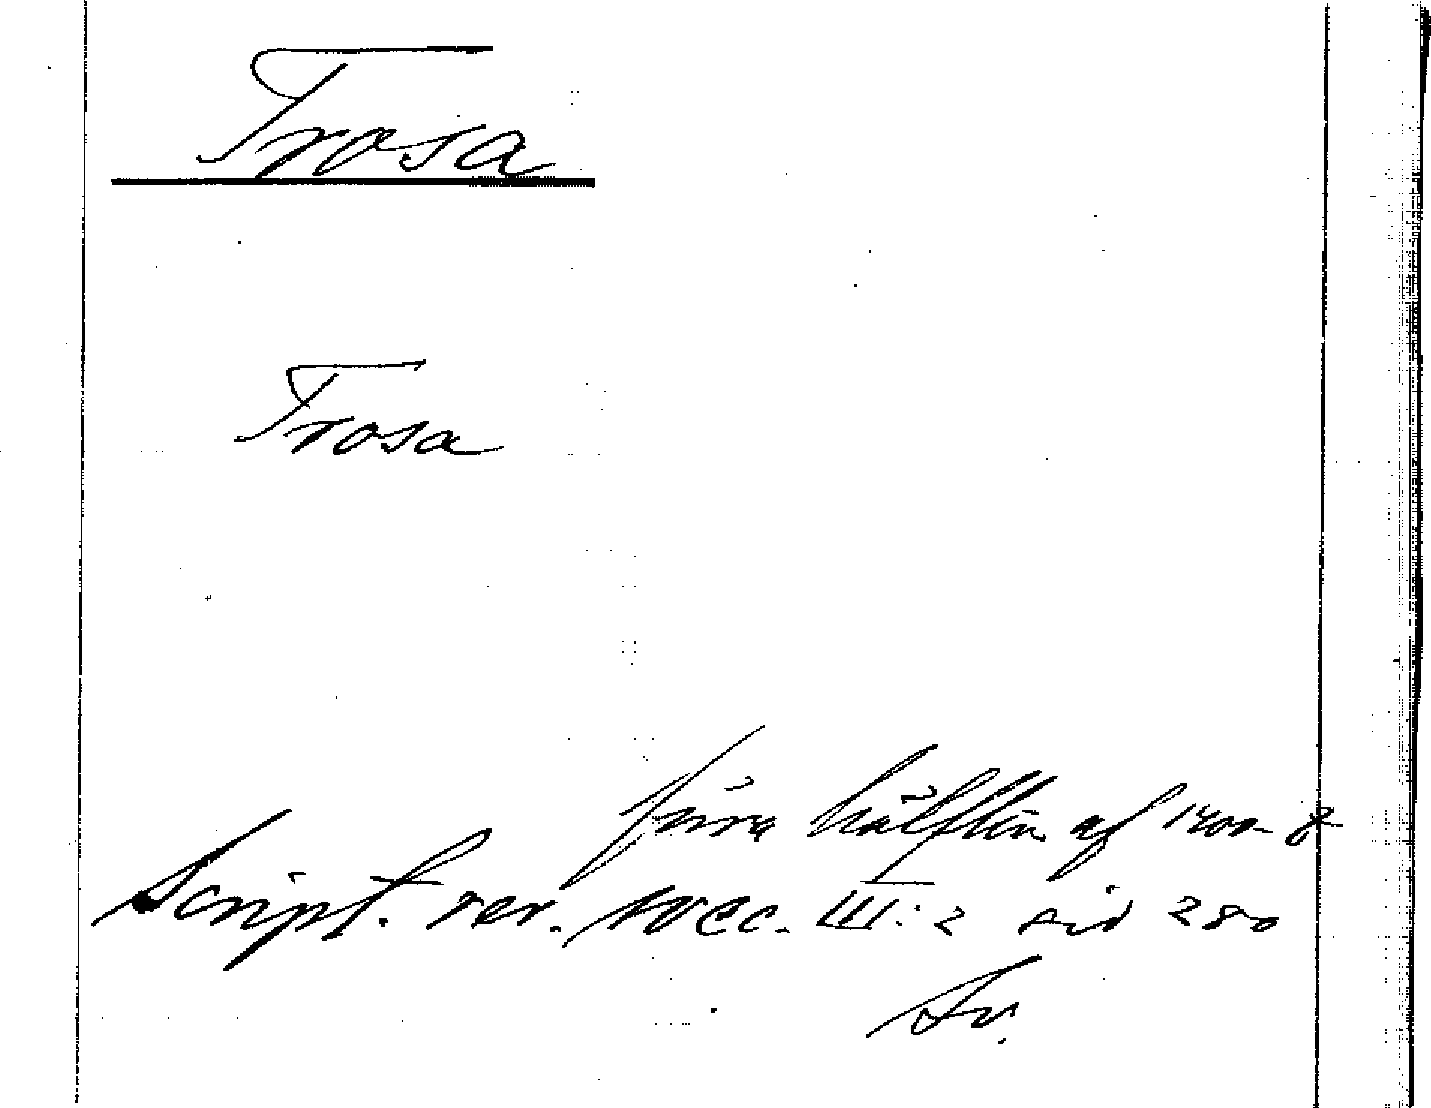 Trosa
Trosa
förra hälften af 1400-t
Script. rer. svec. III: 2 sid 280
Sv.